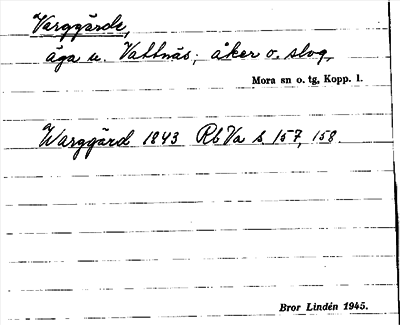 Varggärde,
äga u. Vattnäs; åker o. slog.
Mora sn o. tg, Kopp. l.
Warggärd 1843 Rb Va s. 157, 158.
Bror Lindén 1945.